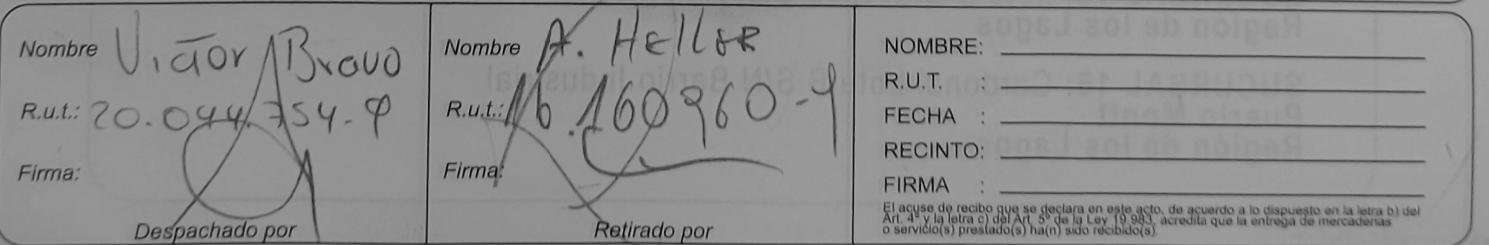 Nombre Victor Bravo
R.u.t.: 20.044.754-9
Firma:
Despachado por
Nombre A. Heller
R.u.t.: 16.160960-9
Firma:
Retirado por
NOMBRE:
R.U.T. :
FECHA :
RECINTO:
FIRMA :
El acuse de recibo que se declara en este acto, de acuerdo a lo dispuesto en la letra b) del
Art. 4° y la letra c) del Art. 5° de la Ley 19.983, acredita que la entrega de mercaderias
o servicio(s) prestado(s) ha(n) sido recibido(s).